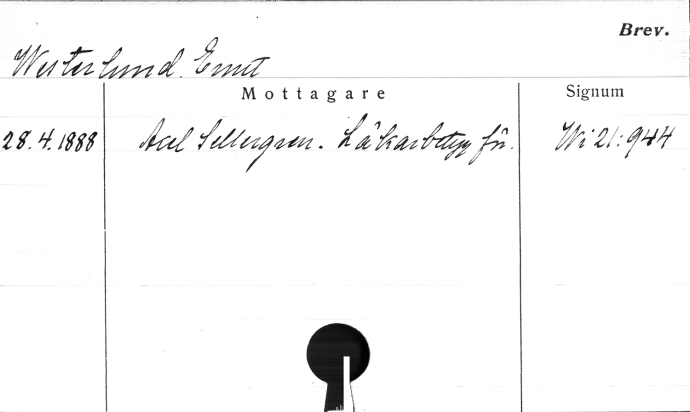 Brev.
Westerlund, Ernst
Mottagare Signum
28.4.1888 Axel Sellergren. Läkarbetyg för. Wi 21:944